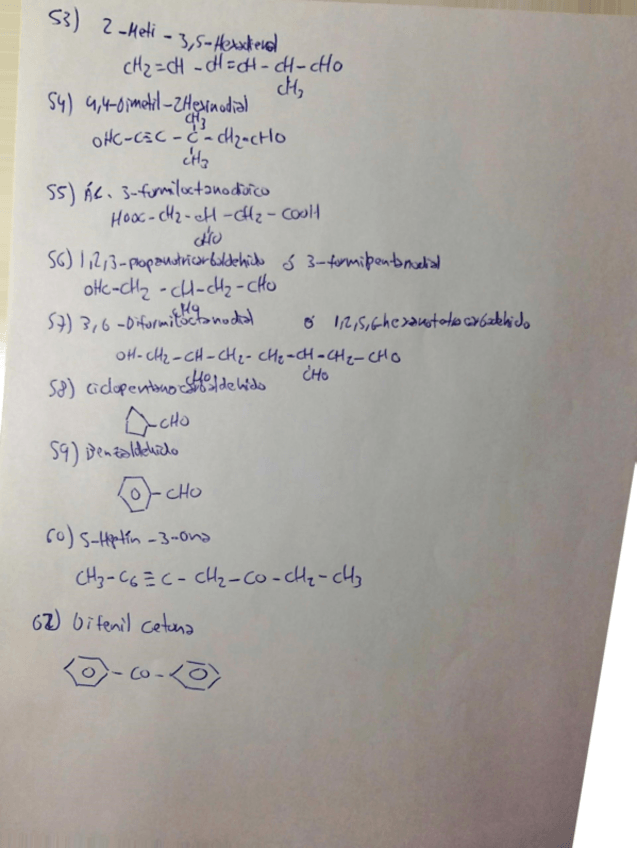 53) 2-Meti-3,5-Hexadienal
CH2=CH-CH=CH-CH-CHO
CH3
54) 4,4-Dimetil-2Hexinodial
CH3
OHC-C≡C-C-CH2-CHO
CH3
55) Ác. 3-formiloctanodioico
HOOC-CH2-CH-CH2-COOH
CHO
56) 1,2,3-propanotricarbaldehido ó 3-formilpentanodial
OHC-CH2-CH-CH2-CHO
57) 3,6-Diformiloctanodial ó 1,2,5,6 hexanotetracarbaldehido
OH-CH2-CH-CH2-CH2-CH-CH2-CHO
CHO CHO
58) Ciclopentanocarbaldehido
-CHO
59) Benzaldehido
-CHO
60) 5-Heptin-3-Ona
CH3-C6≡C-CH2-CO-CH2-CH3
62) Difenil cetona
-CO-